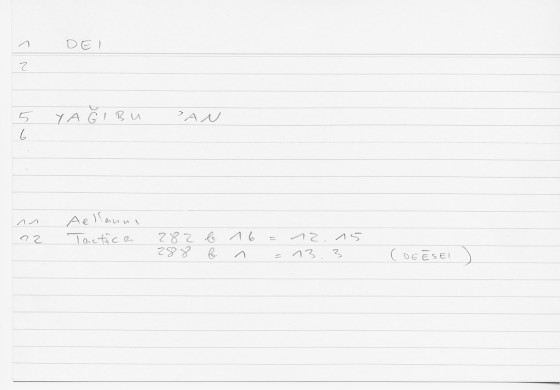 1 DEI
2
5 YAĞIBU ʾAN
6
11 Aelianus
12 Tactica 282 b 16 = 12.15
288 b 1 = 13.3 (DEĒSEI)